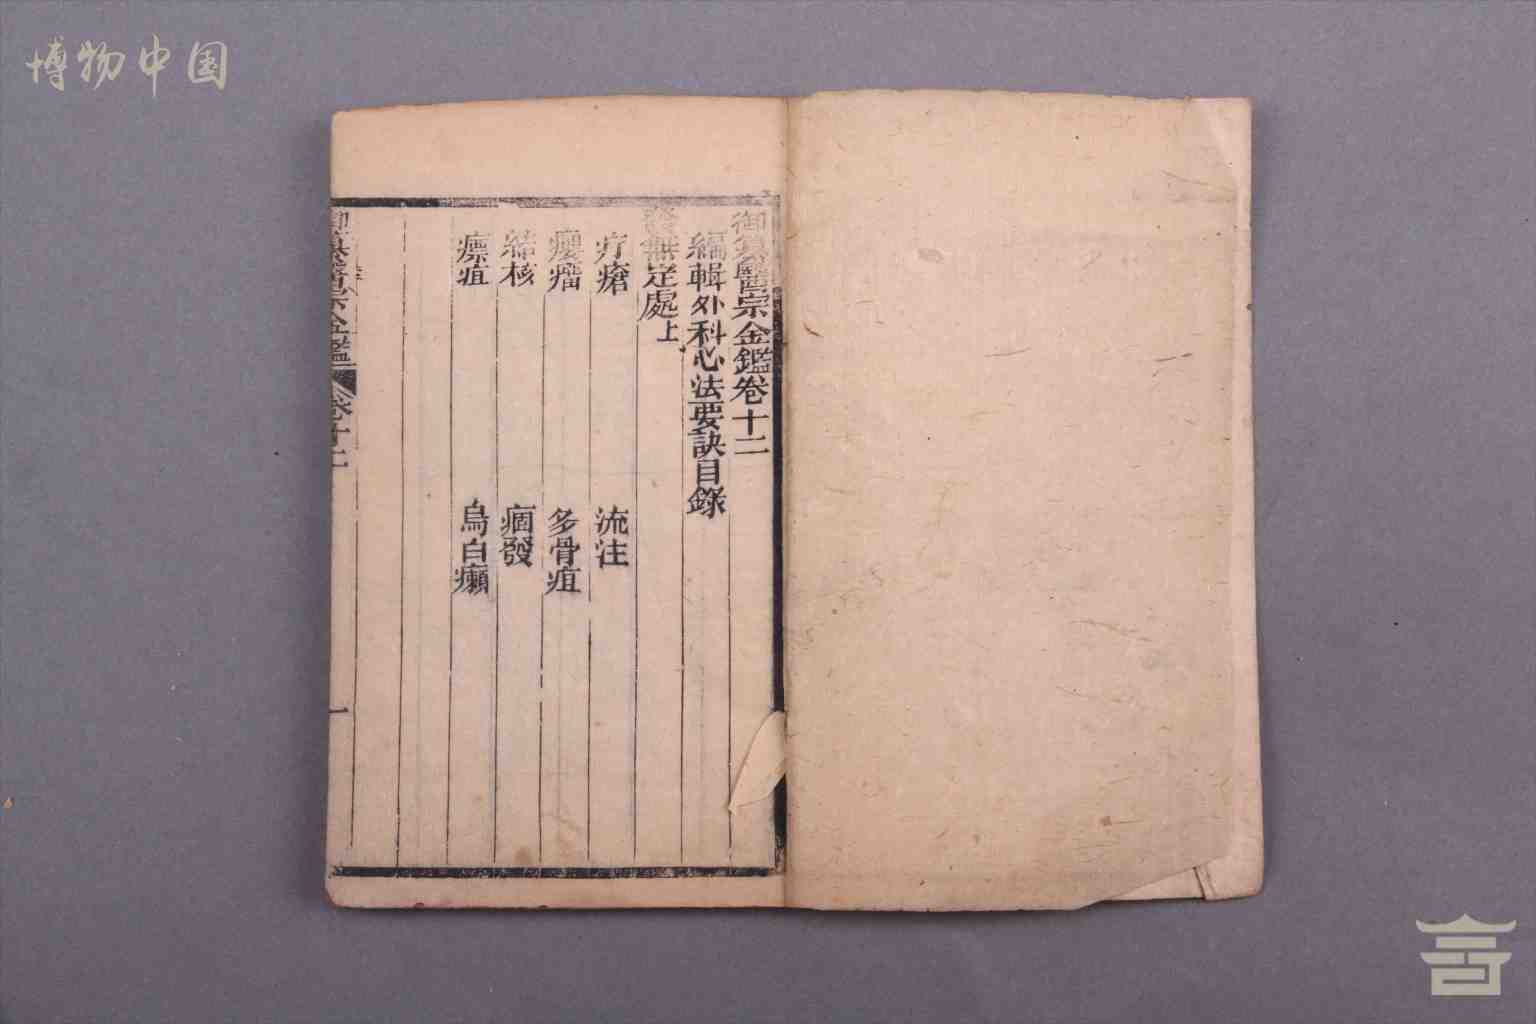 博物中国
御纂醫宗金鑑卷十二
編輯外科心法要訣目錄
發無定處上
疔瘡 流注
癭瘤 多骨疽
結核 痼發
瘭疽 烏白癩
御纂醫宗金鑑 卷十二
一